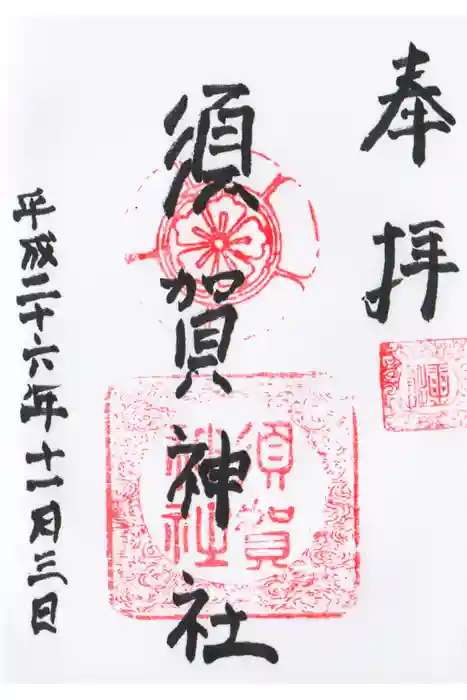 奉拝
須賀神社
須賀
神社
平成二十六年十一月三日